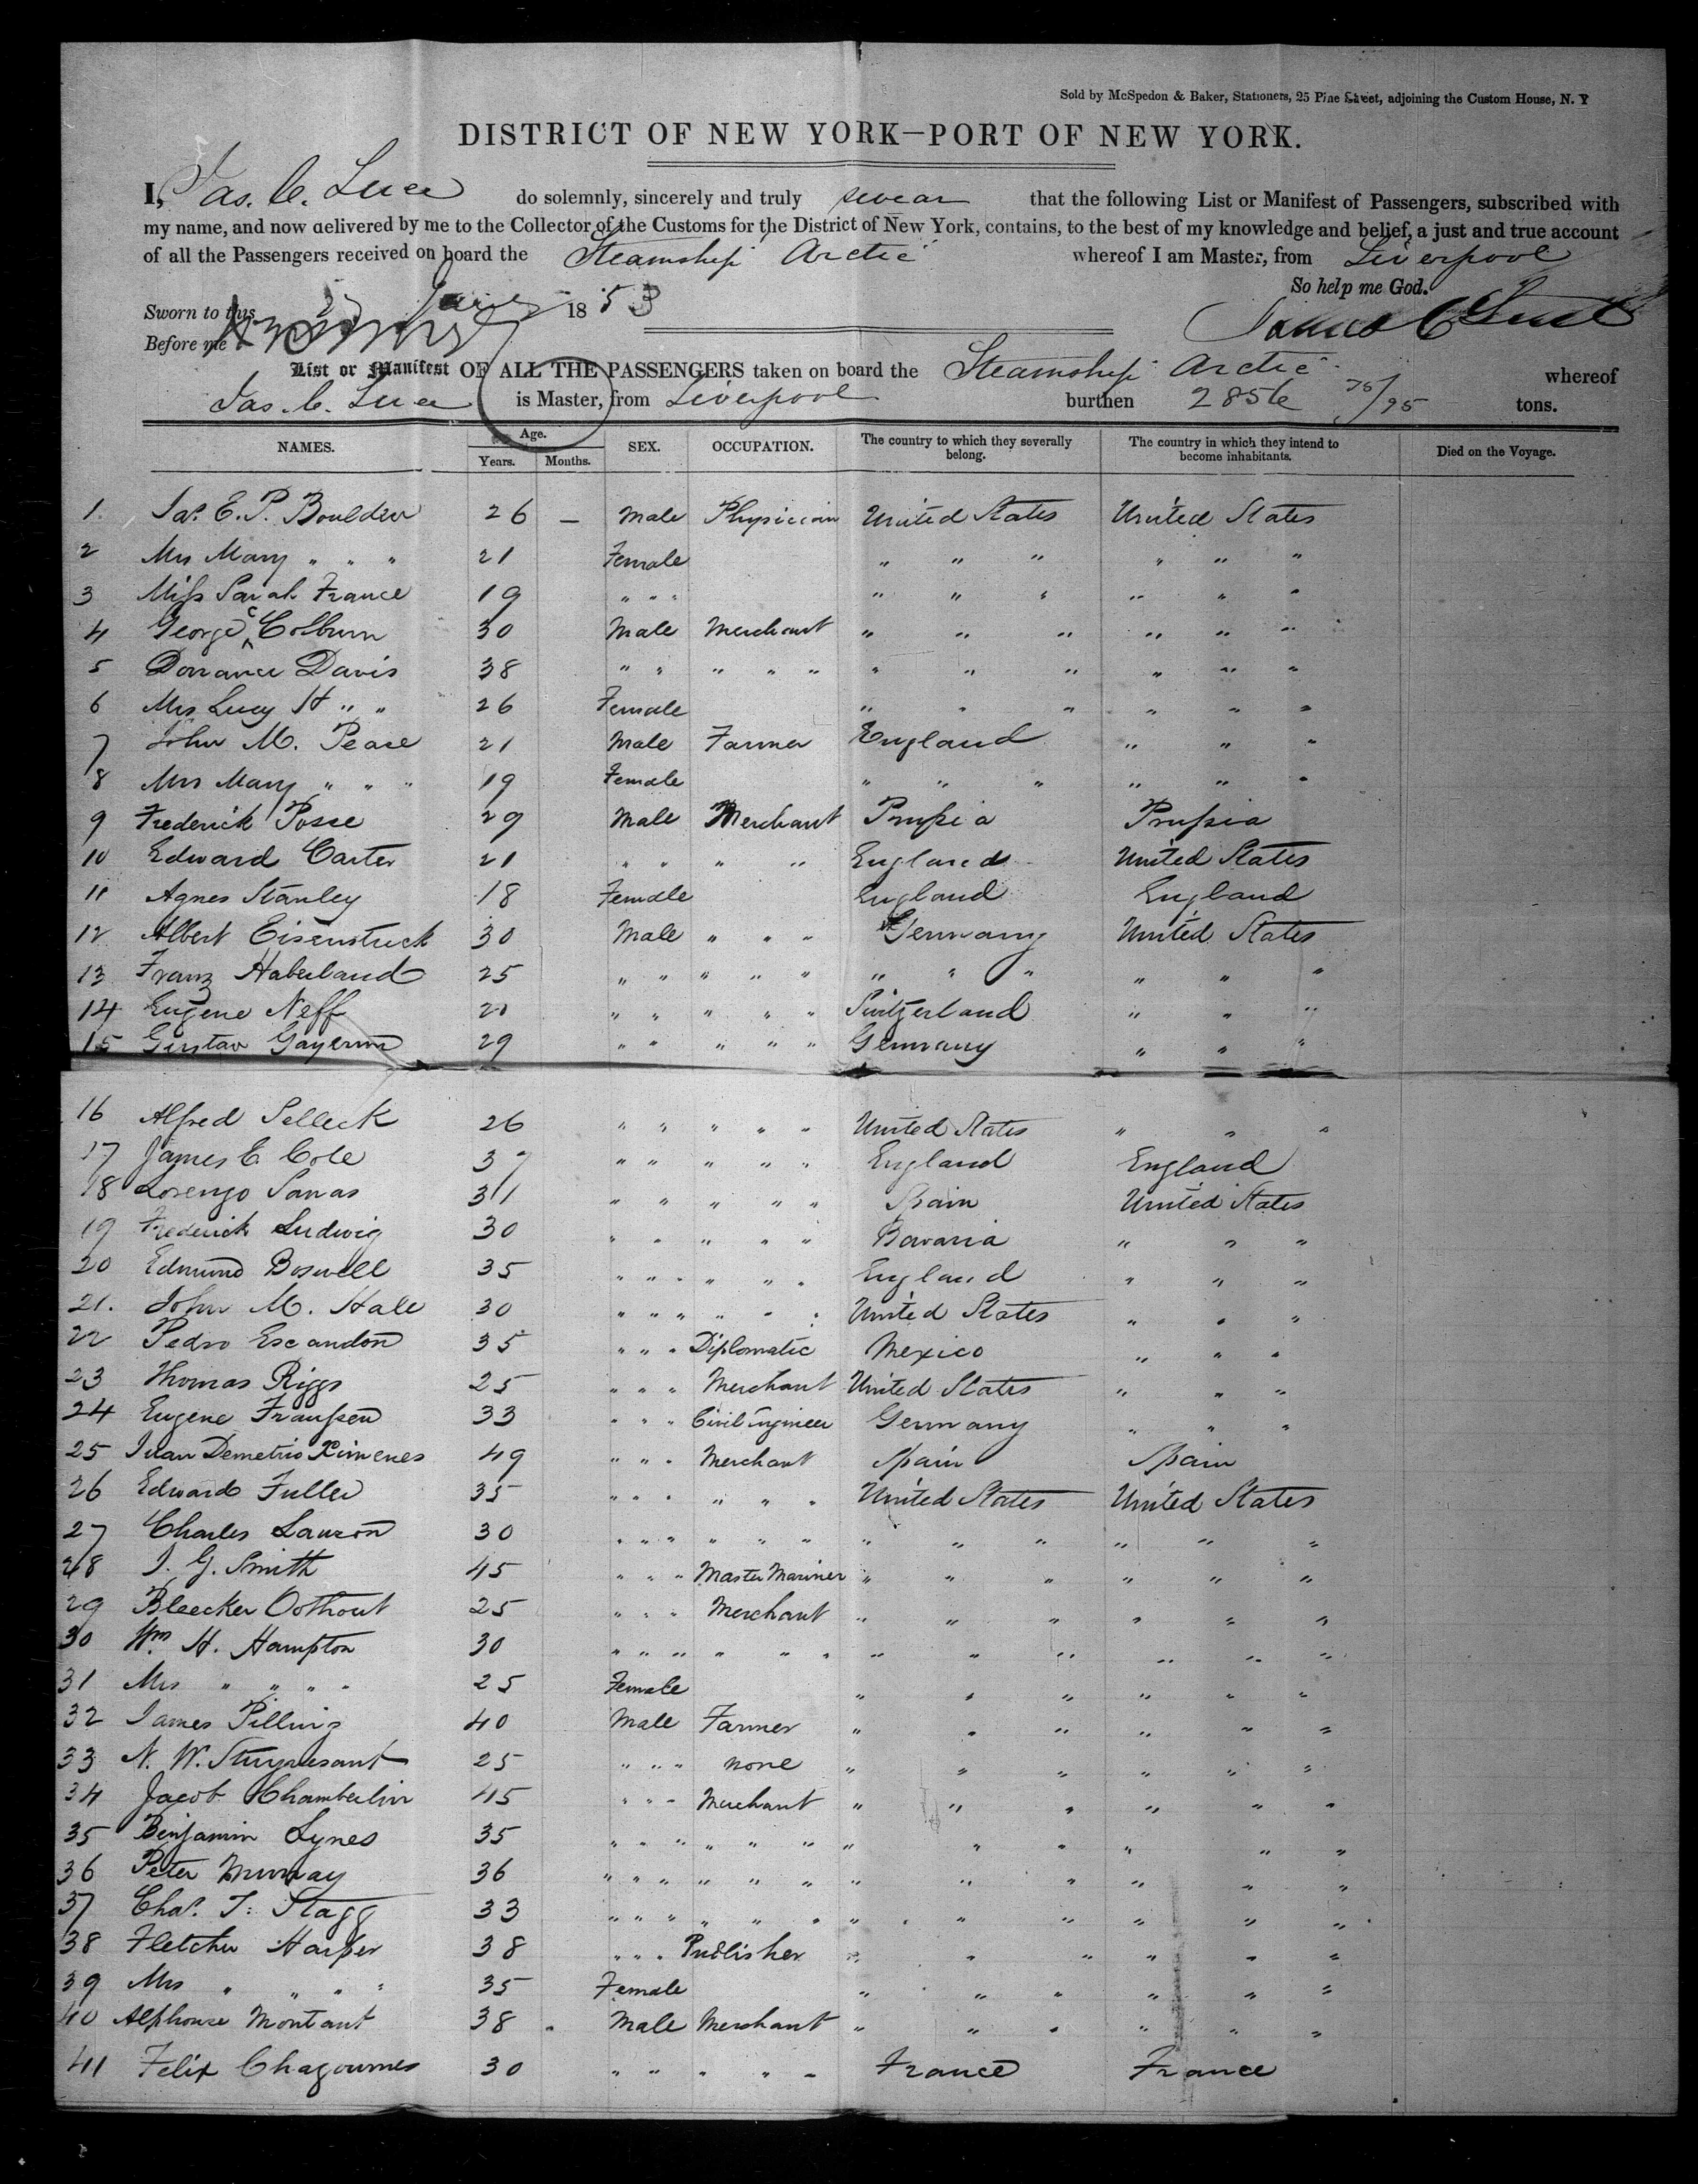 Sold by McSpedon & Baker, Stationers, 25 Pine Street, adjoining the Custom House, N. Y
DISTRICT OF NEW YORK—PORT OF NEW YORK.
I, Jas. C. Luce do solemnly, sincerely and truly swear that the following List or Manifest of Passengers, subscribed with
my name, and now delivered by me to the Collector of the Customs for the District of New York, contains, to the best of my knowledge and belief, a just and true account
of all the Passengers received on board the Steamship Arctic whereof I am Master, from Liverpool
So help me God.
Sworn to this 1853 James C Luce
Before me
List or Manifest OF ALL THE PASSENGERS taken on board the Steamship Arctic whereof
Jas. C. Luce is Master, from Liverpool burthen 2856 75/95 tons.
NAMES. Age. Years. Months. SEX. OCCUPATION. The country to which they severally belong. The country in which they intend to become inhabitants. Died on the Voyage.
1. Jas. E. P. Boulden 26 — Male Physician United States United States
2 Mrs Mary " " " 21 Female " " " " " "
3 Miss Sarah France 19 " " " " " " " " "
4 George C Colburn 30 Male Merchant " " " " " "
5 Dorrance Davis 38 " " " " " " " " " " "
6 Mrs Lucy H " " 26 Female " " " " " "
7 John M. Pease 21 Male Farmer England " " "
8 Mrs Mary " " " 19 Female " " " " " "
9 Frederick Posse 29 Male Merchant Prussia Prussia
10 Edward Carter 21 " " " " England United States
11 Agnes Stanley 18 Female England England
12 Albert Eisenstuck 30 Male " " " Germany United States
13 Franz Haberland 25 " " " " " " " " " " "
14 Eugene Neff 20 " " " " " Switzerland " " "
15 Gustav Gayerin 29 " " " " " Germany " " "
16 Alfred Selleck 26 " " " " " United States " " "
17 James C. Cole 37 " " " " " England England
18 Lorenzo Sanas 31 " " " " " Spain United States
19 Frederick Ludwig 30 " " " " " Bavaria " " "
20 Edmund Boswell 35 " " " " " " England " " "
21. John M. Hale 30 " " " " " " United States " " "
22 Pedro Escandon 35 " " " Diplomatic Mexico " " "
23 Thomas Riggs 25 " " " Merchant United States " " "
24 Eugene Franssen 33 " " " Civil Engineer Germany " " "
25 Juan Demetrio Ximenes 49 " " " Merchant Spain Spain
26 Edward Fuller 35 " " " " " " United States United States
27 Charles Lauzon 30 " " " " " " " " " " " "
28 J. G. Smith 45 " " " Master Mariner " " " " " "
29 Bleecker Oothout 25 " " " Merchant " " " " " "
30 Wm H. Hampton 30 " " " " " " " " " " " "
31 Mrs " " " " 25 Female " " " " " "
32 James Pilling 40 Male Farmer " " " " " "
33 N. W. Stuyvesant 25 " " " none " " " " " "
34 Jacob Chamberlin 45 " " " Merchant " " " " " "
35 Benjamin Lynes 35 " " " " " " " " " " " "
36 Peter Murray 36 " " " " " " " " " " " "
37 Chas. T. Stagg 33 " " " " " " " " " " " "
38 Fletcher Harper 38 " " " Publisher " " " " " "
39 Mrs " " " " 35 Female " " " " " "
40 Alphonse Montant 38 Male Merchant " " " " " "
41 Felix Chagournes 30 " " " " " France France